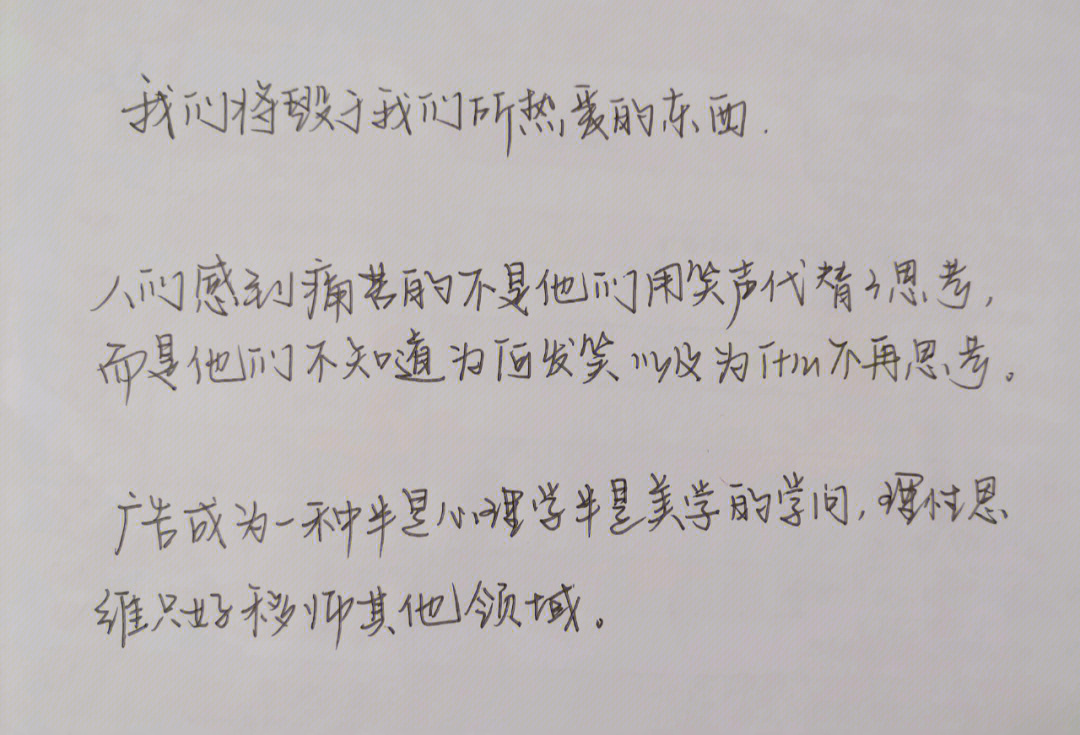 我们将毁于我们所热爱的东西.
人们感到痛苦的不是他们用笑声代替了思考,
而是他们不知道为何发笑以及为什么不再思考。
广告成为一种半是心理学半是美学的学问,理性思
维只好移师其他领域。